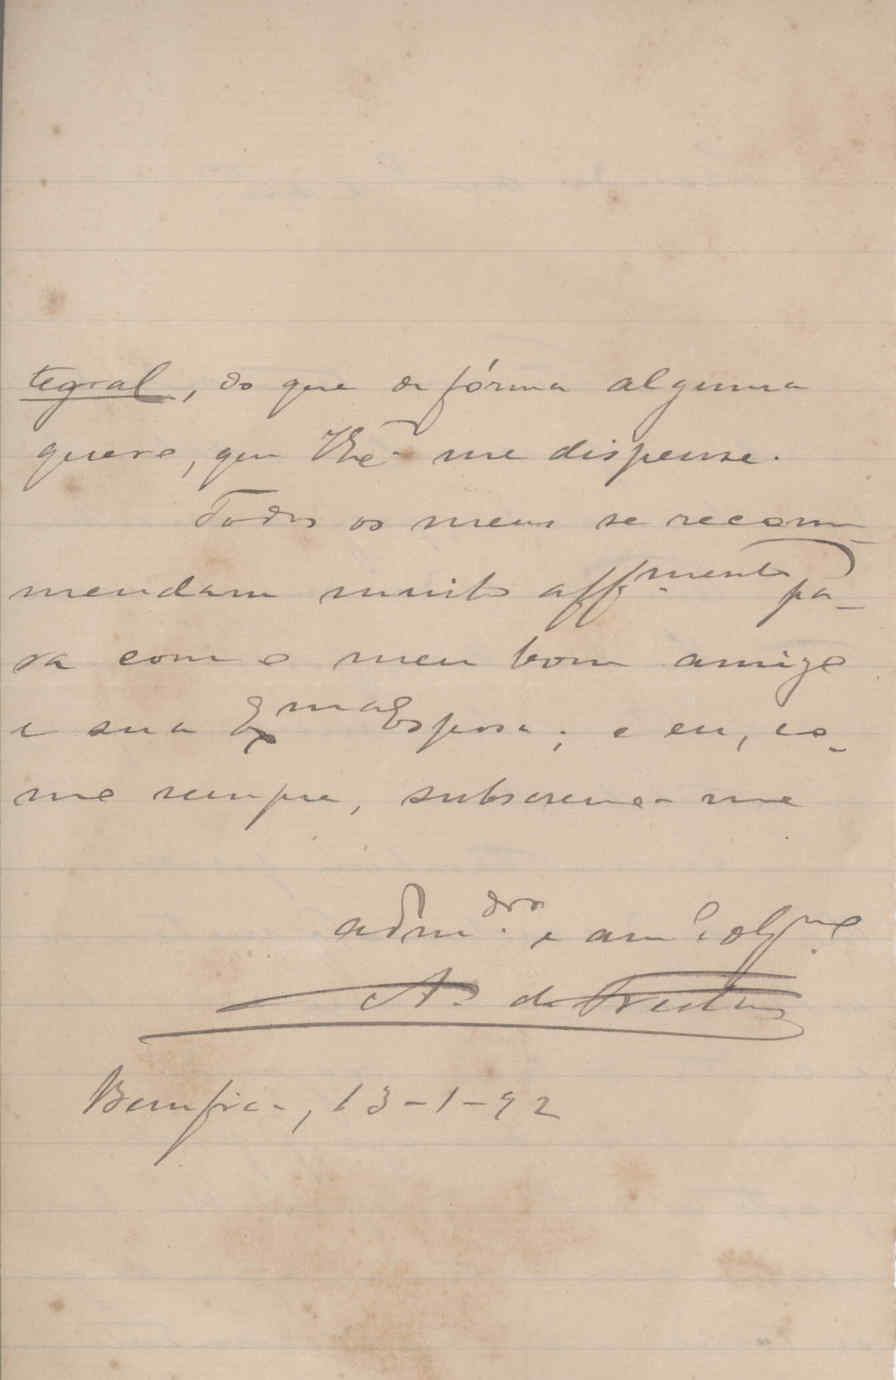 tegral, do que de fórma alguma
quero, que V. Exª me dispense.
Todos os meus se recom
mendam muito aff.mente pa-
ra com o meu bom amigo
e sua Exma Esposa; e eu, co-
mo sempre, subscrevo-me
adm.dor e am.º obgmo
de Freitas
Bemfica, 13-1-92